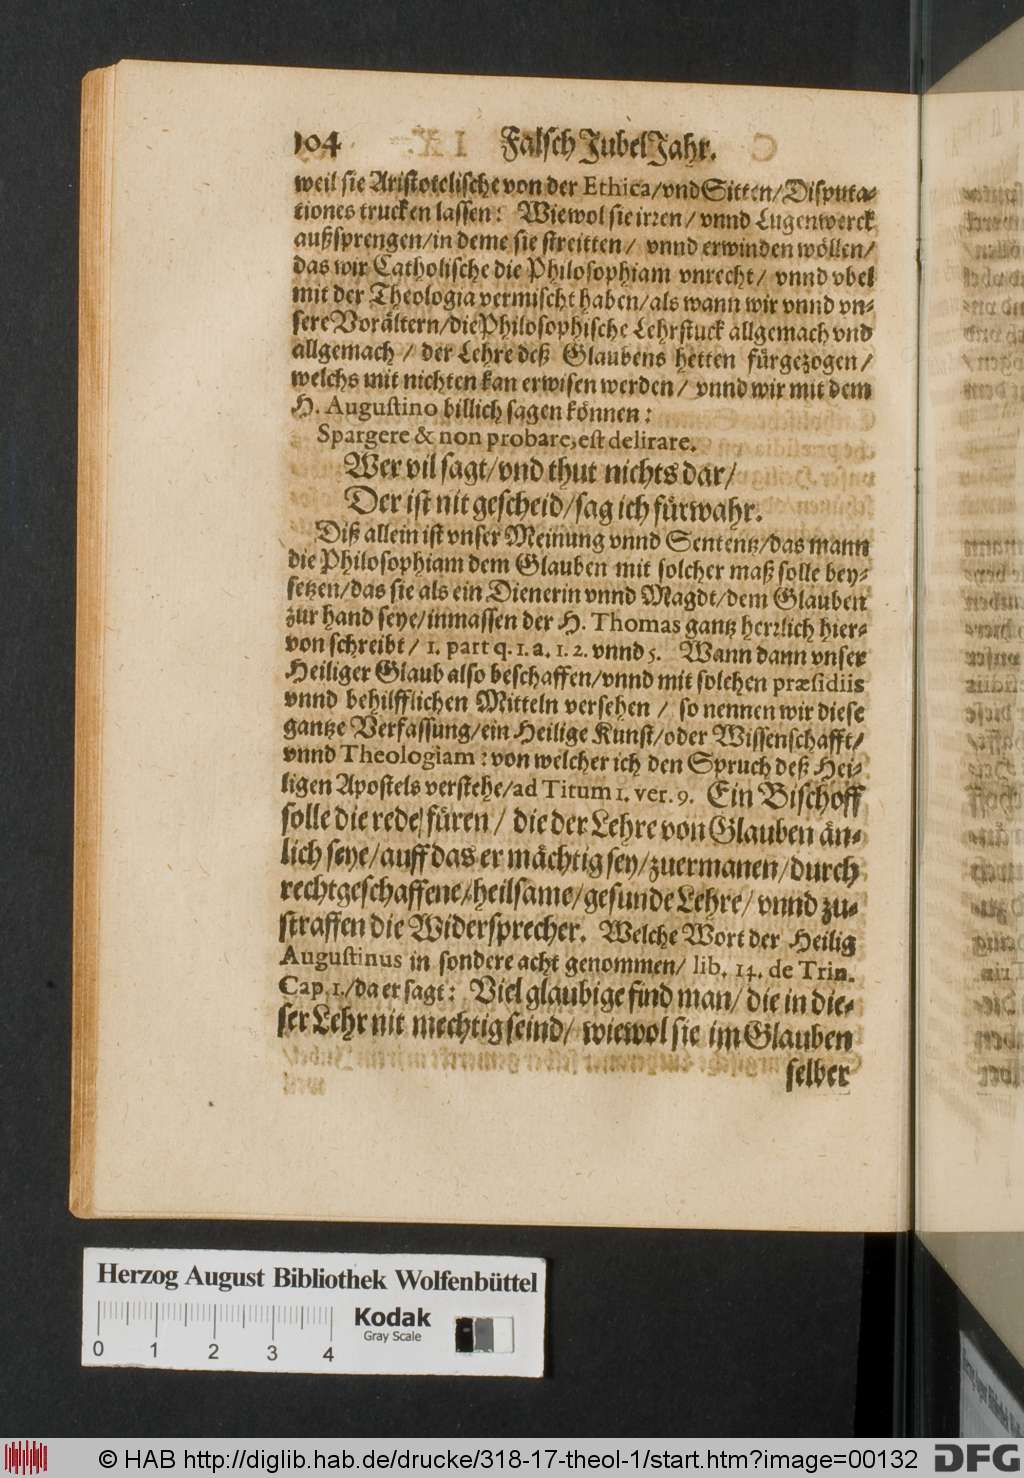 104 Falsch JubelJahr.
weil sie Aristotelische von der Ethica/vnd Sitten/Disputa-
tiones trucken lassen: Wiewol sie irren/ vnnd Lugenwerck
außsprengen/in deme sie streitten/ vnnd erwinden wöllen/
das wir Catholische die Philosophiam vnrecht/ vnnd vbel
mit der Theologia vermischt haben/als wann wir vnnd vn-
sere Vorältern/die Philosophische Lehrstuck allgemach vnd
allgemach/ der Lehre deß Glaubens hetten fürgezogen/
welchs mit nichten kan erwisen werden/ vnnd wir mit dem
H. Augustino billich sagen können:
Spargere & non probare, est delirare.
Wer vil sagt/vnd thut nichts dar/
Der ist nit gescheid/sag ich fürwahr.
Diß allein ist vnser Meinung vnnd Sententz/das mann
die Philosophiam dem Glauben mit solcher maß solle bey-
setzen/das sie als ein Dienerin vnnd Magdt/dem Glauben
zur hand seye/inmassen der H. Thomas gantz herrlich hier-
von schreibt/ 1. part q. 1. a. 1. 2. vnnd 5. Wann dann vnser
Heiliger Glaub also beschaffen/vnnd mit solchen præsidiis
vnnd behilfflichen Mitteln versehen/ so nennen wir diese
gantze Verfassung/ein Heilige Kunst/oder Wissenschafft/
vnnd Theologiam: von welcher ich den Spruch deß Hei-
ligen Apostels verstehe/ad Titum 1. ver. 9. Ein Bischoff
solle die rede füren/ die der Lehre von Glauben än-
lich seye/auff das er mächtig sey/zuermanen/durch
rechtgeschaffene/heilsame/gesunde Lehre/ vnnd zu-
straffen die Widersprecher. Welche Wort der Heilig
Augustinus in sondere acht genommen/ lib. 14. de Trin.
Cap. 1./da er sagt: Viel glaubige find man/ die in die-
ser Lehr nit mechtig seind/ wiewol sie im Glauben
selber
Herzog August Bibliothek Wolfenbüttel
Kodak
Gray Scale
0 1 2 3 4
© HAB http://diglib.hab.de/drucke/318-17-theol-1/start.htm?image=00132
DFG